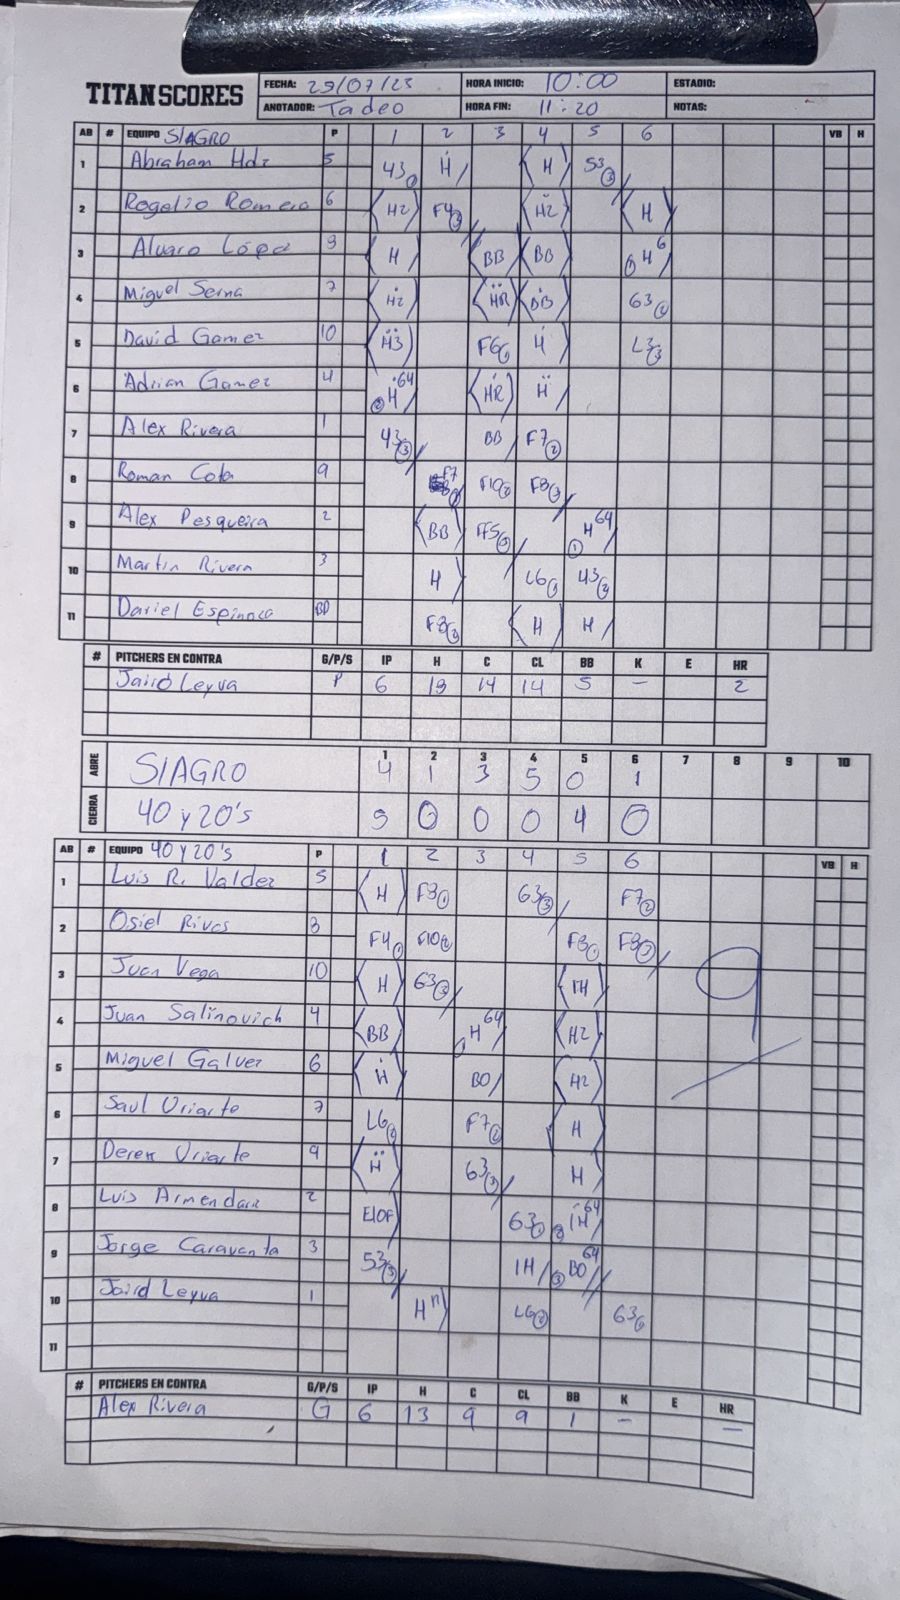 TITANSCORES
FECHA: 29/07/23 HORA INICIO: 10:00 ESTADIO:
ANOTADOR: Tadeo HORA FIN: 11:20 NOTAS:
AB # EQUIPO SIAGRO P 1 2 3 4 5 6 VB H
1 Abraham Hdz 5 43 H H 53
2 Rogelio Romero 6 H2 F4 H2 H
3 Alvaro López H BB BB H 6
4 Miguel Serna 7 H2 HR BB 63
5 David Gamez 10 H3 F6 H L3
6 Adrian Gamez 4 H 64 HR H
7 Alex Rivera 1 43 BB F7
8 Roman Cota 9 F7 F10 F8
9 Alex Pesqueira 2 BB FF5 H 64
10 Martin Rivera 3 H L6 43
11 Dariel Espinoza BD F8 H H
# PITCHERS EN CONTRA G/P/S IP H C CL BB K E HR
Jaird Leyva P 6 19 14 14 5 – 2
1 2 3 4 5 6 7 8 9 10
ABRE SIAGRO 4 1 3 5 0 1
CIERRA 40 y 20's 5 0 0 0 4 0
AB # EQUIPO 40 y 20's P 1 2 3 4 5 6 VB H
1 Luis R. Valdez 5 H F8 63 F7
2 Osiel Rivas 8 F4 F10 F8 F8
3 Juan Vega 10 H 63 IH
4 Juan Salinovich 4 BB H 64 H2
5 Miguel Galvez 6 H BO H2
6 Saul Uriarte 7 L6 F7 H
7 Derek Uriarte 9 H 63 H
8 Luis Armendariz 2 E10F 63 IH 64
9 Jorge Caravanta 3 53 IH BO 64
10 Jaird Leyva 1 H L6 63
11
9
# PITCHERS EN CONTRA G/P/S IP H C CL BB K E HR
Alex Rivera G 6 13 9 9 1 – –